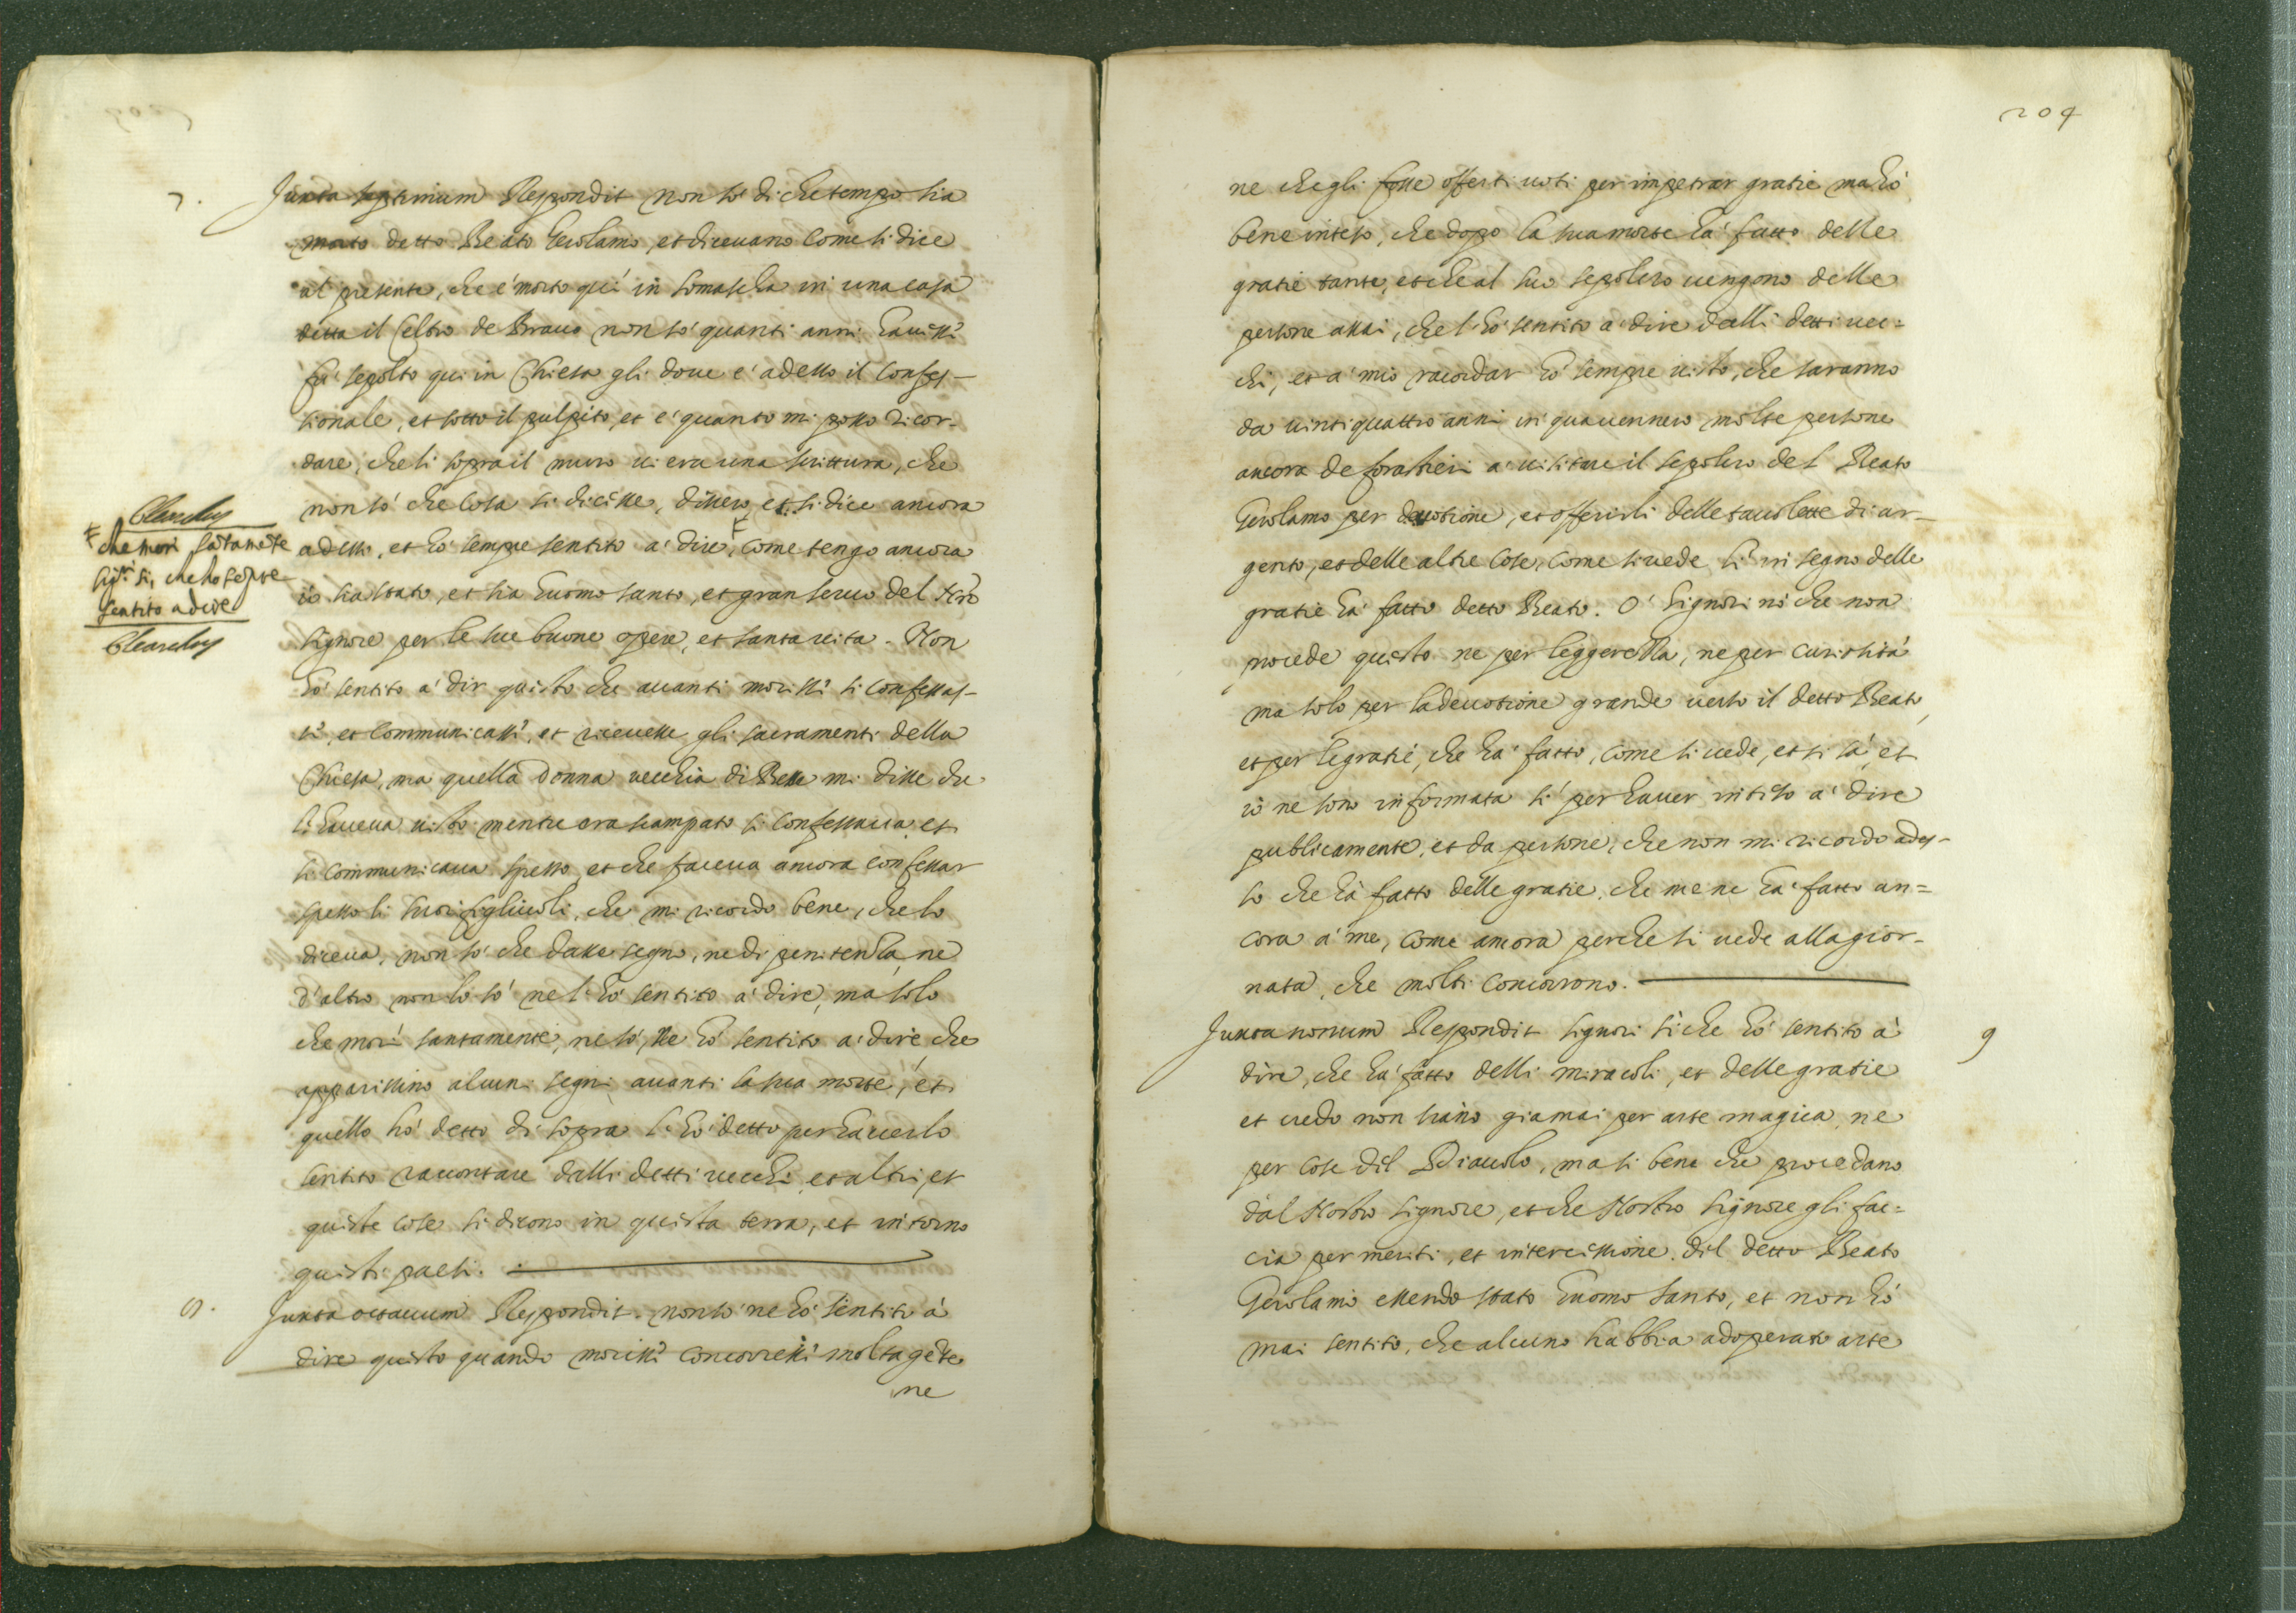 7.
Juxta septimum Respondit non sò di che tempo sia
morto detto Beato Gerolamo, et diceuano come si dice
al presente, che e' morto qui in somascha in una casa
detta il Celtro de non so' quanti anni hauessi
fu' sepolto qui in Chiesa gli doue e' adesso il confes-
sionale, et sotto il pulpito, et e' quanto mi posso ricor-
dare, che li sopra il muro ui era una scrittura, che
non so' che cosa si dicesse, dissero, et si dice ancora
adesso, et ho' sempre sentito a' dire, come tengo ancora
io sia stato, et sia huomo santo, et gran seruo del
signore per le sue buone opere, et santa uita. Non
ho' sentito a' dir questo che auanti morissi si confessas-
si, et communicassi, et riceuesse gli sacramenti della
Chiesa, ma quella donna uecchia di mi disse che
l'haueua uisto mentre era scampato si confessaua, et
si communicaua spesso, et che faceua ancora confessar
spesso li suoi figliuoli, che mi ricordo bene, che lo
diceua, non so' che dasse segno, ne di penitenza, ne
d'altro non lo so' ne l'ho' sentito a' dire, ma solo
che mori' santamente, ne so', ne ho' sentito a' dire, che
apparissino alcuni segni auanti la sua morte, et
quello ho' detto di sopra l'ho' detto per hauerlo
sentito raccontare dalli detti uecchi, et altri, et
queste cose si dicono in questa terra, et intorno
questi paesi.
che mori sātamēte
sigri si, che ho sēpre
sentito a dire
8.
Juxta octauum Respondit. non so' ne ho' sentito a'
dire questo quando morissi concorressi molta gēte
ne
204
ne che gli fosse offerti uoti per impetrar gratie ma ho'
bene inteso, che dopo la sua morte ha' fatto delle
gratie tante, et che al suo sepolcro uengono delle
persone assai, che l'ho' sentito a' dire dalli detti uec=
chi, et a' mio racordar ho' sempre uisto, che saranno
da uintiquattro anni in qua uennero molte persone
ancora de forastieri a' uisitare il sepolcro del Beato
Gerolamo per deuotione, et offerirli delle tauolette di ar-
gento, et delle altre cose, come si uede li' in segno delle
gratie ha' fatto detto Beato. O' signori nò che non
procede questo ne per leggerezza, ne per curiosità
ma solo per la deuotione grande uerso il detto Beato,
et per le gratie, che ha' fatto, come si uede, et si sà, et
io ne sono informata si' per hauer inteso a' dire
publicamente, et da persone, che non mi ricordo ades-
so che hà fatto delle gratie, che me ne ha' fatto an=
cora a' me, come ancora perche si uede alla gior-
nata, che molti concorrono.
Juxta nonum Respondit signori si' che ho' sentito à
9
dire, che ha' fatto delli miracoli, et delle gratie
et credo non siano giamai per arte magica, ne
per cose dil Diauolo, ma si bene che procedano
dal Nostro signore, et che Nostro signore gli fac=
cia per meriti, et intercessione dil detto Beato
Gerolamo essendo stato huomo santo, et non hò
mai sentito, che alcuno habbia adoperato arte